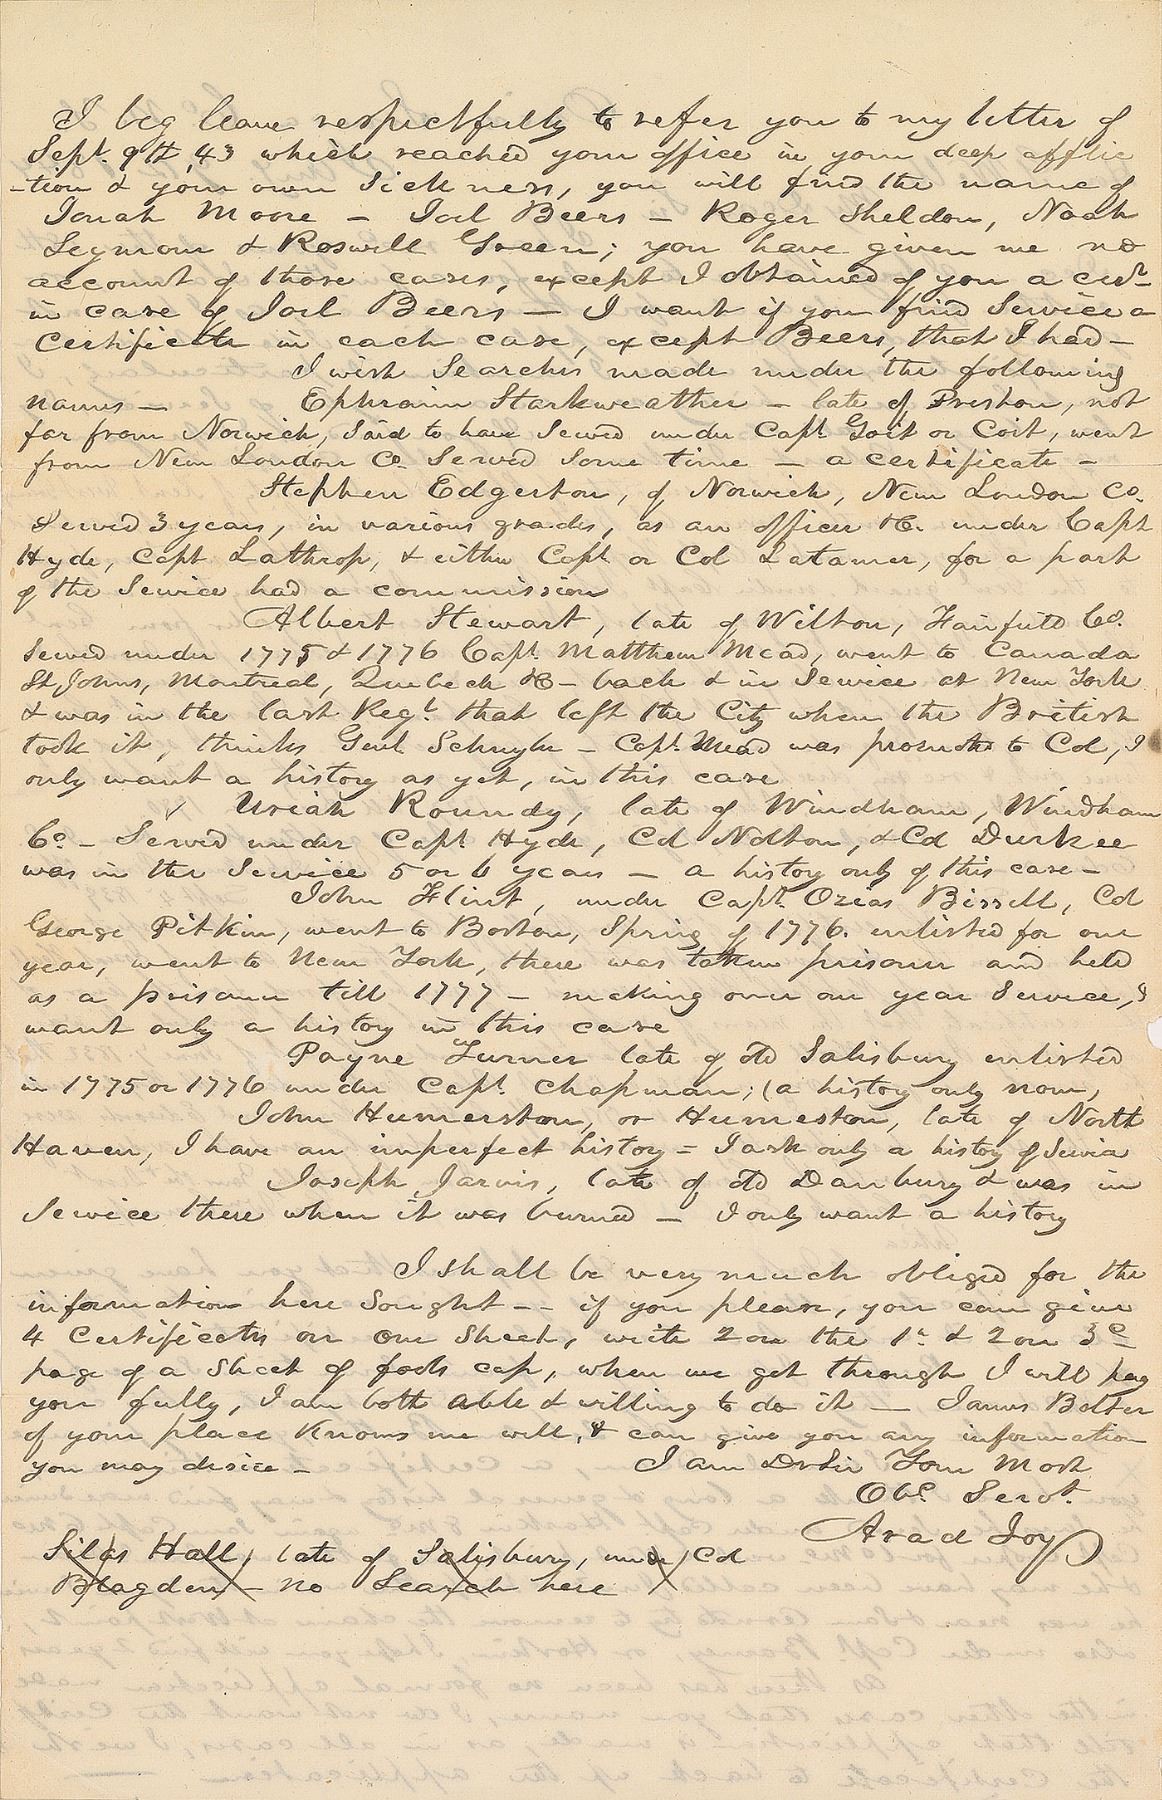 I beg leave respectfully to refer you to my letter of
Sept. 9th, 43 which reached your office in your deep afflic
-tion & your own Sickness, you will find the name of
Jonah Moore - Joel Beers - Roger Sheldon, Noah
Seymour & Roswell Green; you have given me no
account of those cases, except I obtained of you a cert
in case of Joel Beers - I want if you find Service a
Certificate in each case, except Beers, that I had -
I wish Searches made under the following
names - Ephraim Starkweather - late of Preston, not
far from Norwich, Said to have Served under Capt. Goit or Coit, went
from New London Co. Served Some time - a certificate -
Stephen Edgerton, of Norwich, New London Co.
Served 3 years, in various grades, as an officer &c. under Capt
Hyde, Capt Lathrop, & either Capt or Col Latamer, for a part
of the Service had a commission
Albert Stewart, late of Wilton, Fairfield Co.
Served under 1775 & 1776 Capt. Matthew Mead, went to Canada
St Johns, Montreal, Quebeck &c - back & in Service at New York
& was in the last Regt. that left the City when the British
took it, thinks Genl Schuyler - Capt. Mead was promoted to Col, I
only want a history as yet, in this case
Uriah Roundy, late of Windham, Windham
Co. - Served under Capt Hyde, Col Nolton, & Col Durkee
was in the Service 5 or 6 years - a history only of this case -
John Flint, under Capt. Ozias Bissell, Col
George Pitkin, went to Boston, Spring of 1776. enlisted for one
year, went to New York, there was taken prisoner and held
as a prisoner till 1777 - making over one year Service, I
want only a history in this case
Payne Turner late of old Salisbury enlisted
in 1775 or 1776 under Capt. Chapman; (a history only now,
John Humerston, or Humeston, late of North
Haven, I have an imperfect history = I ask only a history of Service
Joseph Jarvis, late of old Danbury & was in
Service there when it was burned - I only want a history
I shall be very much obliged for the
information here Sought -- if you please, you can give
4 Certificates on one Sheet, write 2 on the 1st & 2 on 3d
page of a Sheet of fools cap, when we get through I will pay
you fully, I am both able & willing to do it - James Belter
of your place Knows me well, & can give you any information
you may desire - I am Dr Sir Your Most
Obt. Servt.
Arad Joy
Silas Hall, late of Salisbury, under Col
Blagden - no Search here